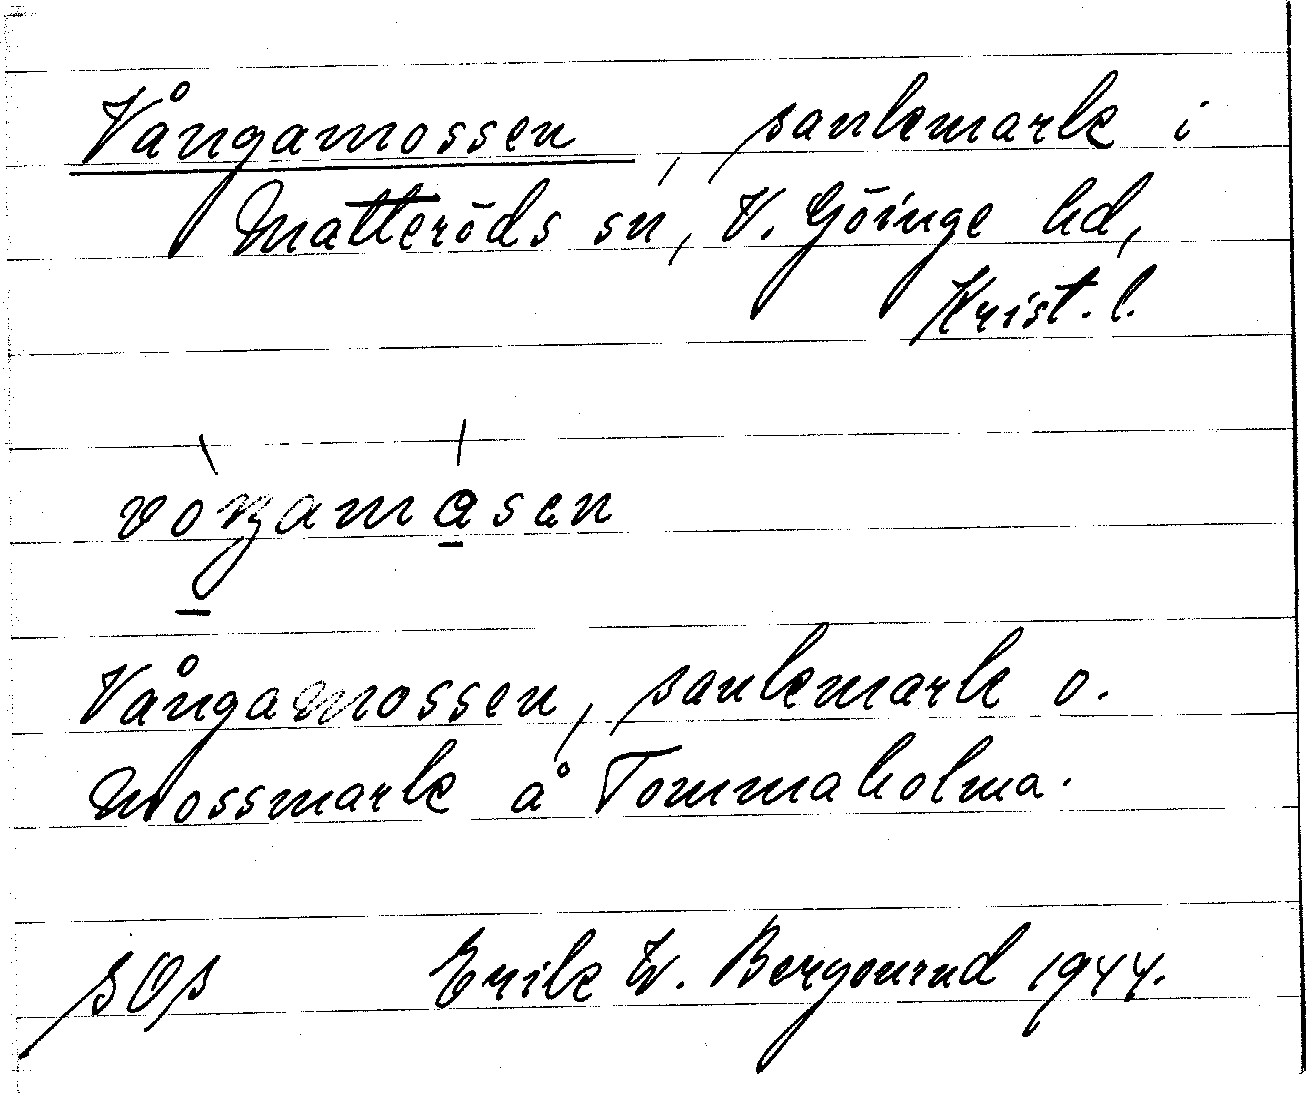 Vångamossen, sankmark i
Matteröds sn, V. Göinge hd,
Krist. l.
Vångamossen, sankmark o.
mossmark å Tommaholma.
Erik W. 1944.